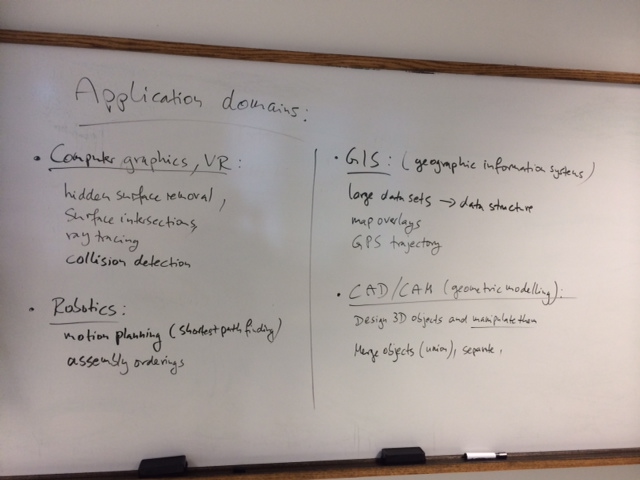 Application domains:
• Computer graphics, VR:
hidden surface removal,
Surface intersections,
ray tracing
collision detection
• Robotics:
motion planning (shortest path finding)
assembly orderings
• GIS: (geographic information systems)
large data sets → data structure
map overlays
GPS trajectory
• CAD/CAM (geometric modelling):
Design 3D objects and manipulate them
Merge objects (union), separate,